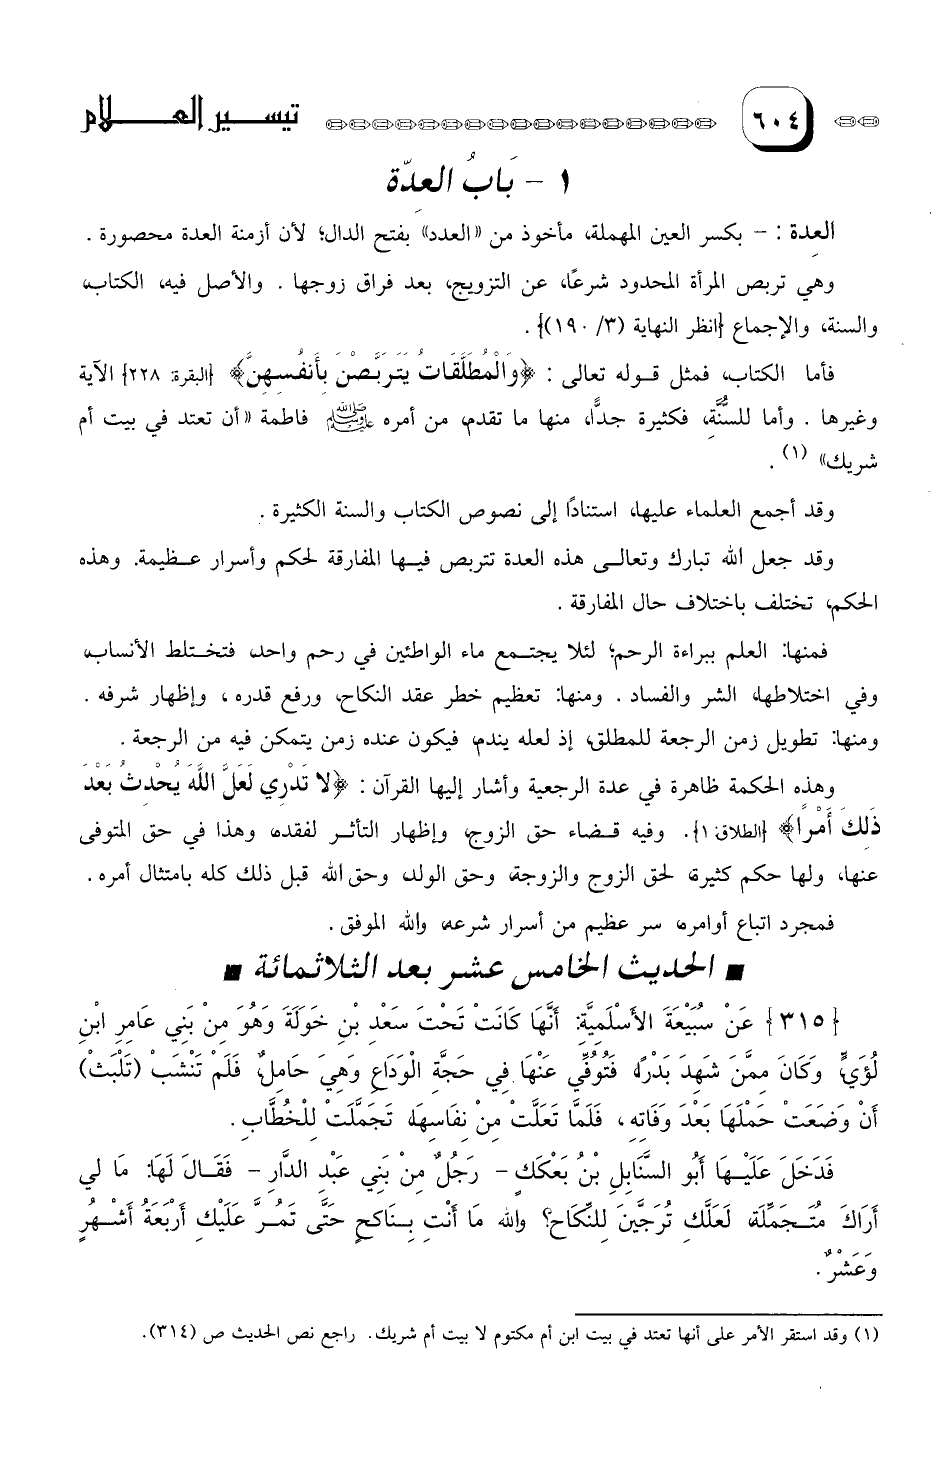 تيسير العلام
٦٠٤
١ - بَابُ العدّة
العدة : - بكسر العين المهملة، مأخوذ من «العدد» بفتح الدال؛ لأن أزمنة العدة محصورة .
وهي تربص المرأة المحدود شرعًا، عن التزويج، بعد فراق زوجها . والأصل فيه، الكتاب،
والسنة، والإجماع {انظر النهاية (٣/ ١٩٠)} .
فأما الكتاب، فمثل قوله تعالى : ﴿وَالْمُطَلَّقَاتُ يَتَرَبَّصْنَ بِأَنفُسِهِنَّ﴾ {البقرة: ٢٢٨} الآية
وغيرها . وأما للسنُّة، فكثيرة جدًّا، منها ما تقدم، من أمره ﷺ فاطمة «أن تعتد في بيت أم
شريك» (١) .
وقد أجمع العلماء عليها، استنادًا إلى نصوص الكتاب والسنة الكثيرة .
وقد جعل الله تبارك وتعالى هذه العدة تتربص فيها المفارقة لحكم وأسرار عظيمة. وهذه
الحكم، تختلف باختلاف حال المفارقة .
فمنها: العلم ببراءة الرحم؛ لئلا يجتمع ماء الواطئين في رحم واحد، فتختلط الأنساب،
وفي اختلاطها، الشر والفساد . ومنها: تعظيم خطر عقد النكاح، ورفع قدره ، وإظهار شرفه .
ومنها: تطويل زمن الرجعة للمطلق، إذ لعله يندم، فيكون عنده زمن يتمكن فيه من الرجعة .
وهذه الحكمة ظاهرة في عدة الرجعية وأشار إليها القرآن : ﴿لا تَدْرِي لَعَلَّ اللَّهَ يُحْدِثُ بَعْدَ
ذَلِكَ أَمْرًا﴾ {الطلاق: ١}. وفيه قضاء حق الزوج وإظهار التأثر لفقده، وهذا في حق المتوفى
عنها، ولها حكم كثيرة، لحق الزوج والزوجة، وحق الولد، وحق الله قبل ذلك كله بامتثال أمره .
فمجرد اتباع أوامره، سر عظيم من أسرار شرعه، والله الموفق .
■ الحديث الخامس عشر بعد الثلاثمائة ■
{٣١٥} عَنْ سُبَيْعَةَ الأَسْلَمِيَّةِ: أَنَّهَا كَانَتْ تَحْتَ سَعْدِ بْنِ خَوْلَةَ وَهُوَ مِنْ بَنِي عَامِرِ ابْنِ
لُؤَيٍّ وَكَانَ مِمَّنْ شَهِدَ بَدْرًا، فَتُوُفِّيَ عَنْهَا فِي حَجَّةِ الْوَدَاعِ وَهِيَ حَامِلٌ، فَلَمْ تَنْشَبْ (تَلْبَثْ)
أَنْ وَضَعَتْ حَمْلَهَا بَعْدَ وَفَاتِهِ ، فَلَمَّا تَعَلَّتْ مِنْ نِفَاسِهَا، تَجَمَّلَتْ لِلْخُطَّابِ .
فَدَخَلَ عَلَيْهَا أَبُو السَّنَابِلِ بْنُ بَعْكَكٍ - رَجُلٌ مِنْ بَنِي عَبْدِ الدَّارِ - فَقَالَ لَهَا: مَا لِي
أَرَاكِ مُتَجَمِّلَةً، لَعَلَّكِ تُرَجِّينَ لِلنِّكَاحِ؟ والله مَا أَنْتِ بِنَاكِحٍ حَتَّى تَمُرَّ عَلَيْكِ أَرْبَعَةُ أَشْهُرٍ
وَعَشْرٌ .
(١) وقد استقر الأمر على أنها تعتد في بيت ابن أم مكتوم لا بيت أم شريك. راجع نص الحديث ص (٣١٤).